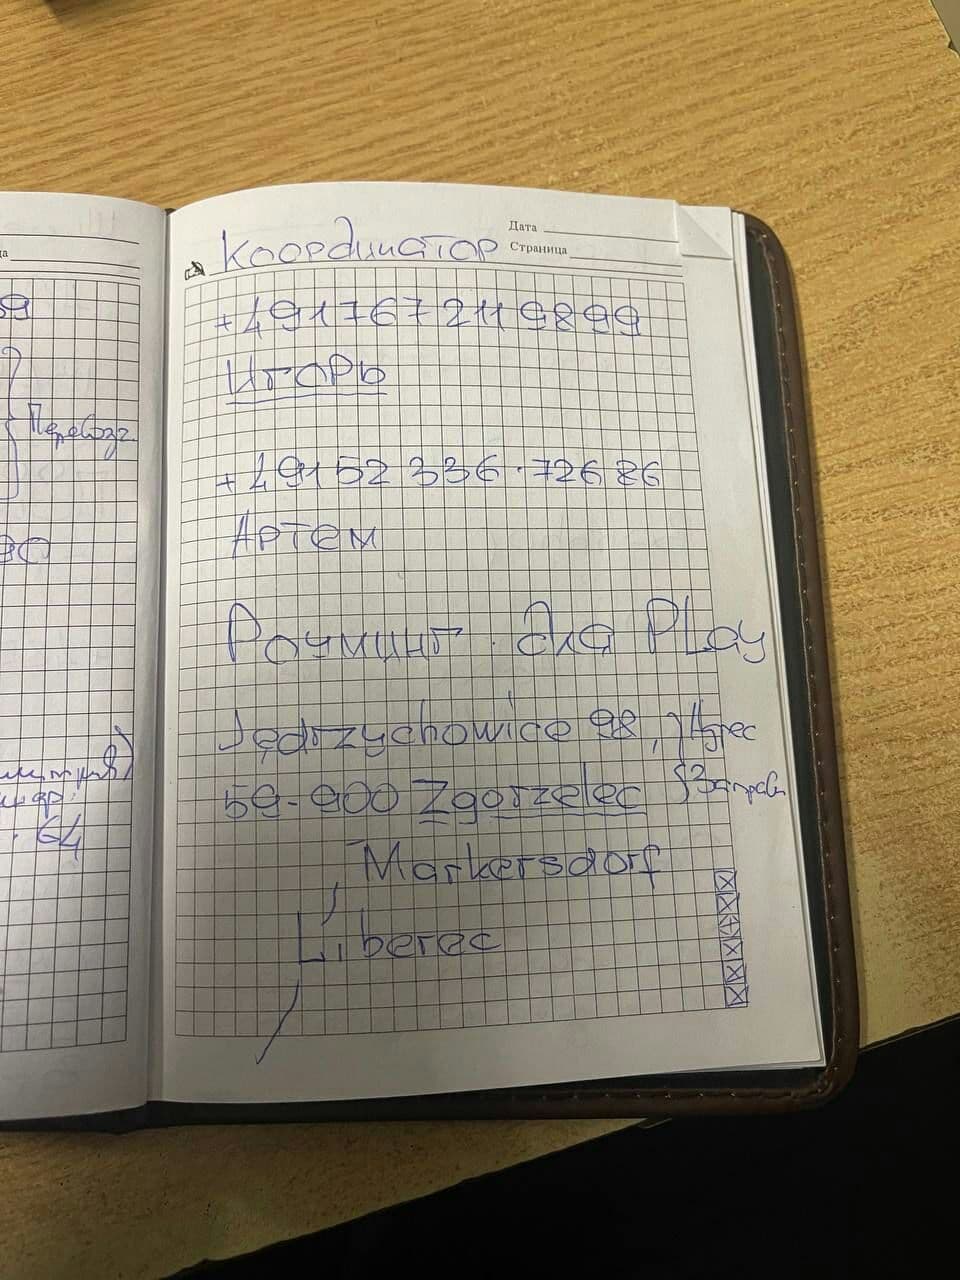 Перевозч.
64
Дата
Страница
Координатор
+4917672119899
Игорь
+49152 336.72686
Артем
Роуминг. для PLay
Jędrzychowice 98, } Адрес
59-900 Zgorzelec } Заправ
Markersdorf
Liberec